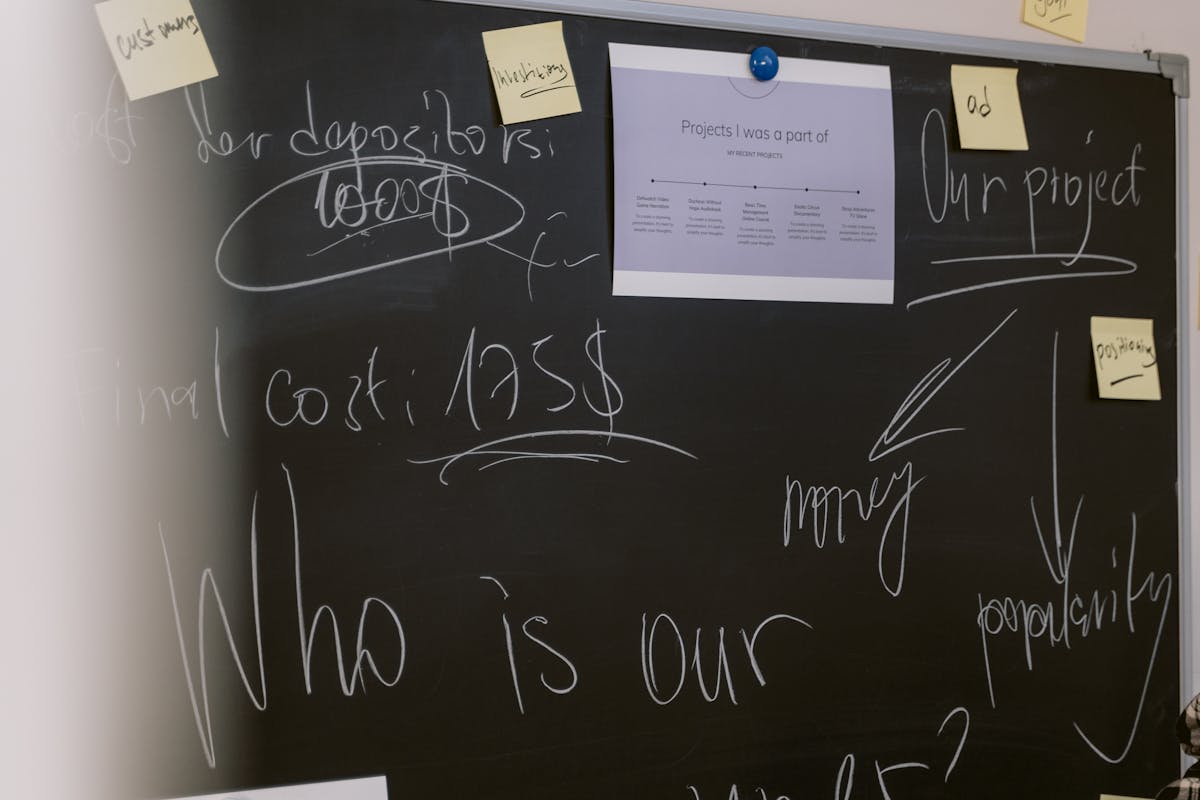 customers
investitions
ad
for depositors:
1000$
Projects I was a part of
MY RECENT PROJECTS
Defwatch Video Game Narration
To create a stunning presentation, it's best to simplify your thoughts.
Duchess Without Hope Audiobook
To create a stunning presentation, it's best to simplify your thoughts.
Basic Time Management Online Course
To create a stunning presentation, it's best to simplify your thoughts.
Exotic Circus Documentary
To create a stunning presentation, it's best to simplify your thoughts.
To create a stunning presentation, it's best to simplify your thoughts.
Our project
positioning
money
popularity
Final cost: 175$
Who is our
?